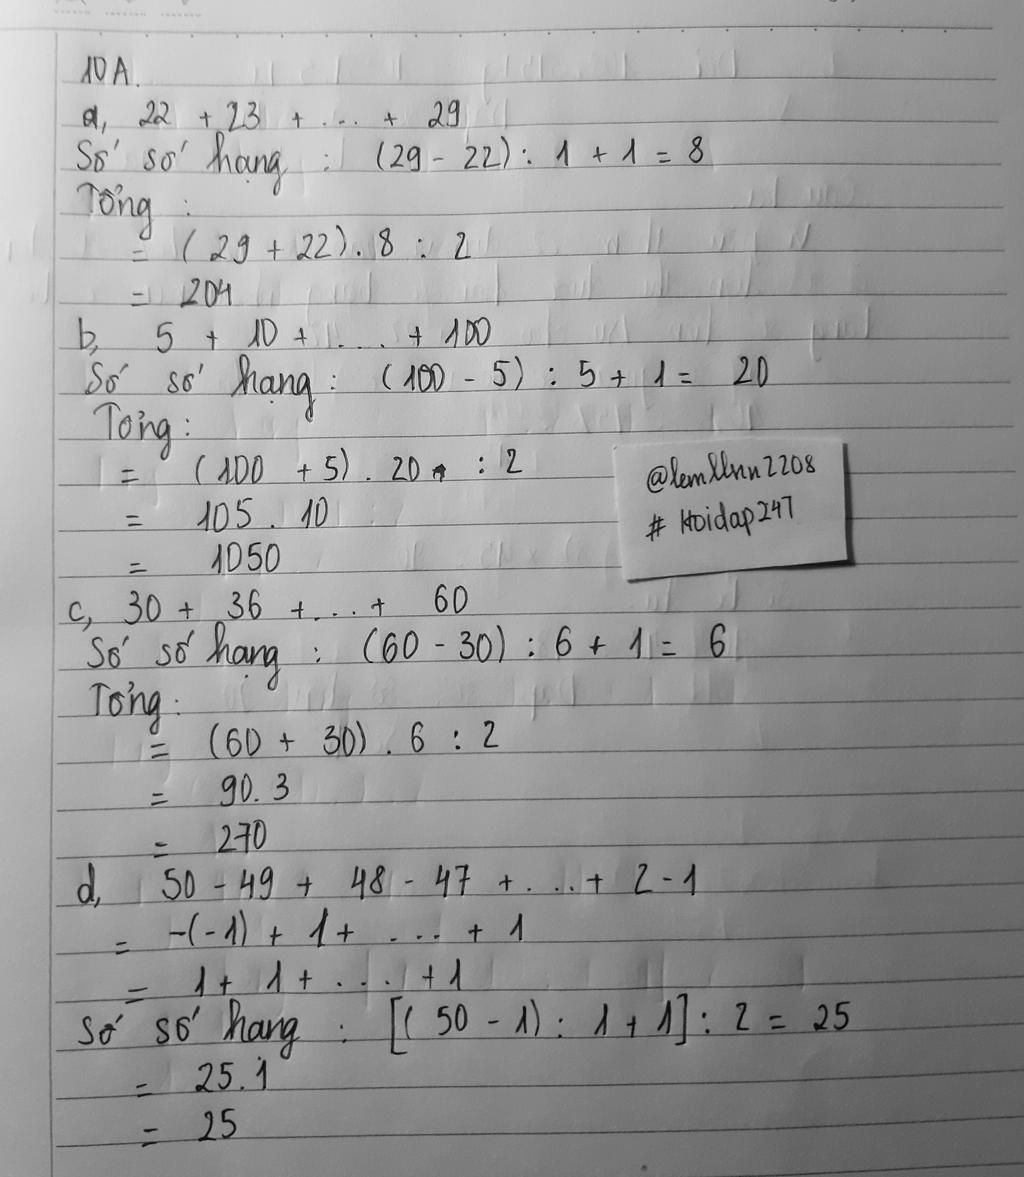 10A.
a, 22 + 23 + ... + 29
Số số hạng : (29 - 22) : 1 + 1 = 8
Tổng :
= (29 + 22) . 8 : 2
= 204
b, 5 + 10 + .... + 100
Số số hạng : (100 - 5) : 5 + 1 = 20
Tổng :
= (100 + 5) . 20 : 2
= 105 . 10
= 1050
@lemllnn2208
# Hoidap247
c, 30 + 36 + ... + 60
Số số hạng : (60 - 30) : 6 + 1 = 6
Tổng :
= (60 + 30) . 6 : 2
= 90 . 3
= 270
d, 50 - 49 + 48 - 47 + ... + 2 - 1
= -(-1) + 1 + .... + 1
= 1 + 1 + .... + 1
Số số hang : [( 50 - 1) : 1 + 1] : 2 = 25
= 25 . 1
= 25